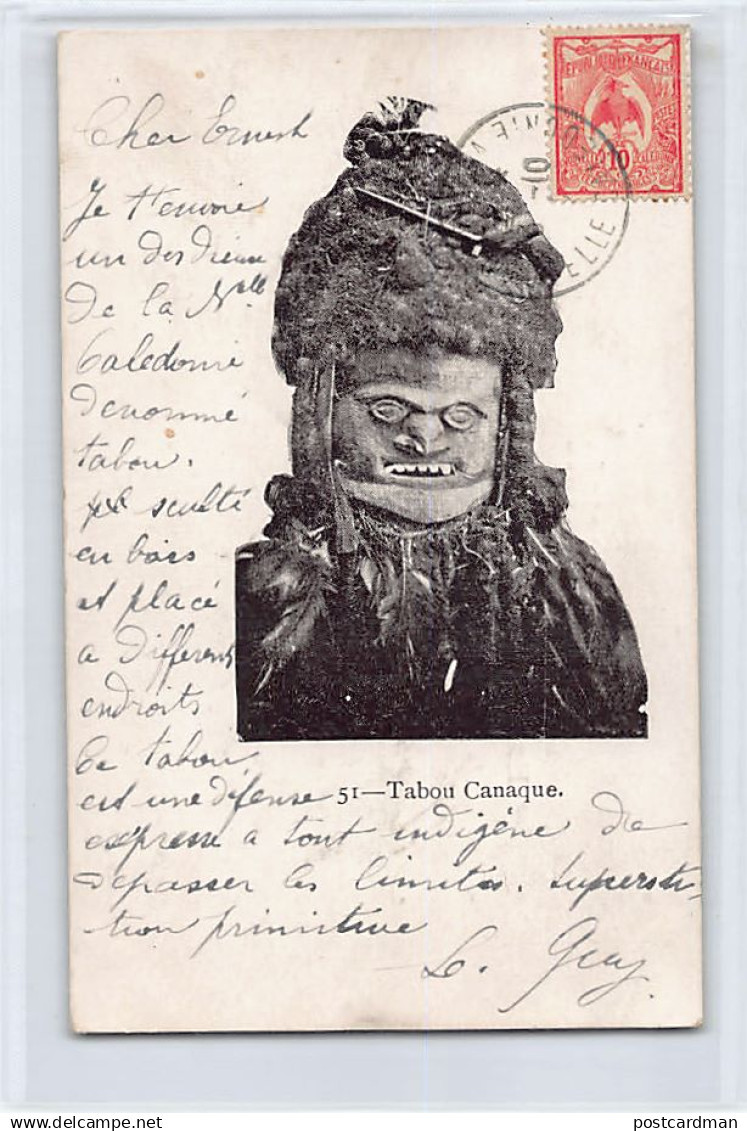 Cher Ernest
Je t'envoie
un des dieux
de la Nelle
Caledonie
denommé
tabou.
sculté
en bois
et placé
a Differents
endroits
Ce tabou
est une défense
expresse a tout indigène de
depasser les limites. Supersti
tion primitive
L. Guy
51—Tabou Canaque.
RÉPUBLIQUE FRANÇAISE
POSTES
10
ELLE
postcardman